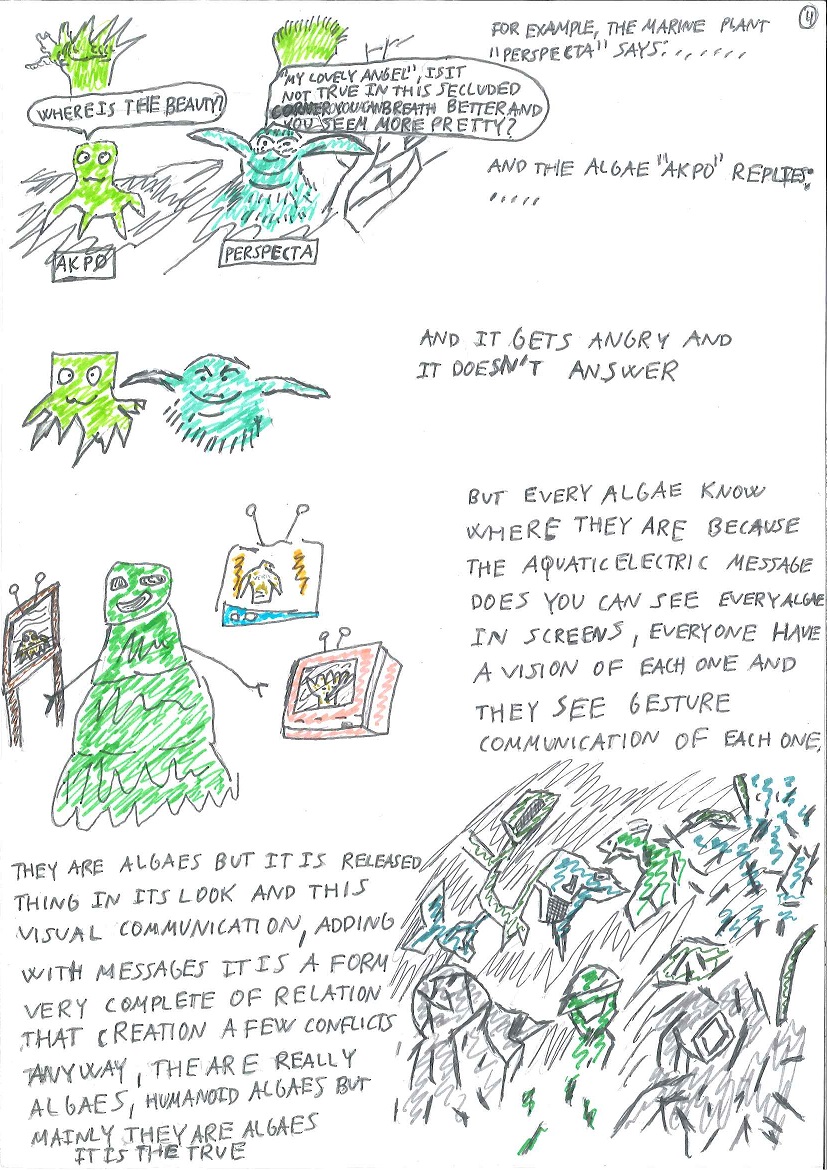 4
FOR EXAMPLE, THE MARINE PLANT
"PERSPECTA" SAYS:......
"MY LOVELY ANGEL", IS IT
NOT TRUE IN THIS SECLUDED
CORNER YOU CAN BREATH BETTER AND
YOU SEEM MORE PRETTY?
WHERE IS THE BEAUTY?
AND THE ALGAE "AKPO" REPLIES:
.....
AKPO
PERSPECTA
AND IT GETS ANGRY AND
IT DOESN'T ANSWER
BUT EVERY ALGAE KNOW
WHERE THEY ARE BECAUSE
THE AQUATIC ELECTRIC MESSAGE
DOES YOU CAN SEE EVERY ALGAE
IN SCREENS, EVERYONE HAVE
A VISION OF EACH ONE AND
THEY SEE GESTURE
COMMUNICATION OF EACH ONE.
THEY ARE ALGAES BUT IT IS RELEASED
THING IN ITS LOOK AND THIS
VISUAL COMMUNICATION, ADDING
WITH MESSAGES IT IS A FORM
VERY COMPLETE OF RELATION
THAT CREATION A FEW CONFLICTS
ANYWAY, THE ARE REALLY
ALGAES, HUMANOID ALGAES BUT
MAINLY THEY ARE ALGAES
IT IS THE TRUE